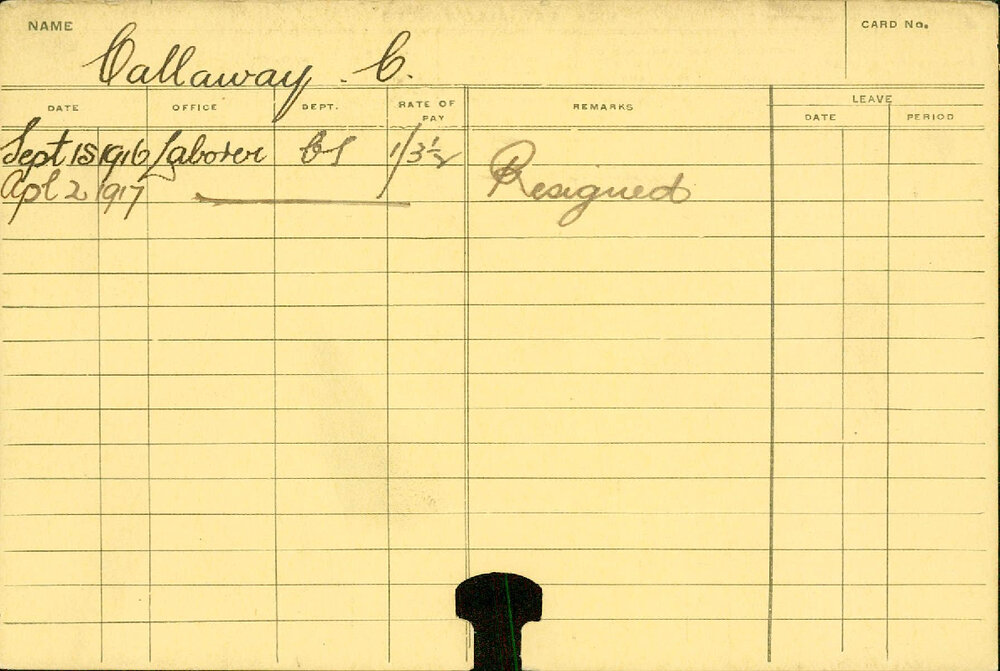 NAME
CARD No.
Callaway . C.
DATE OFFICE DEPT. RATE OF PAY REMARKS LEAVE
DATE PERIOD
Sept 18 1916 Laborer CS 1/3½
Apl 2 1917 Resigned